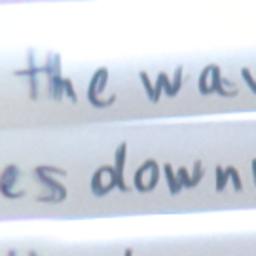 the wav
es down